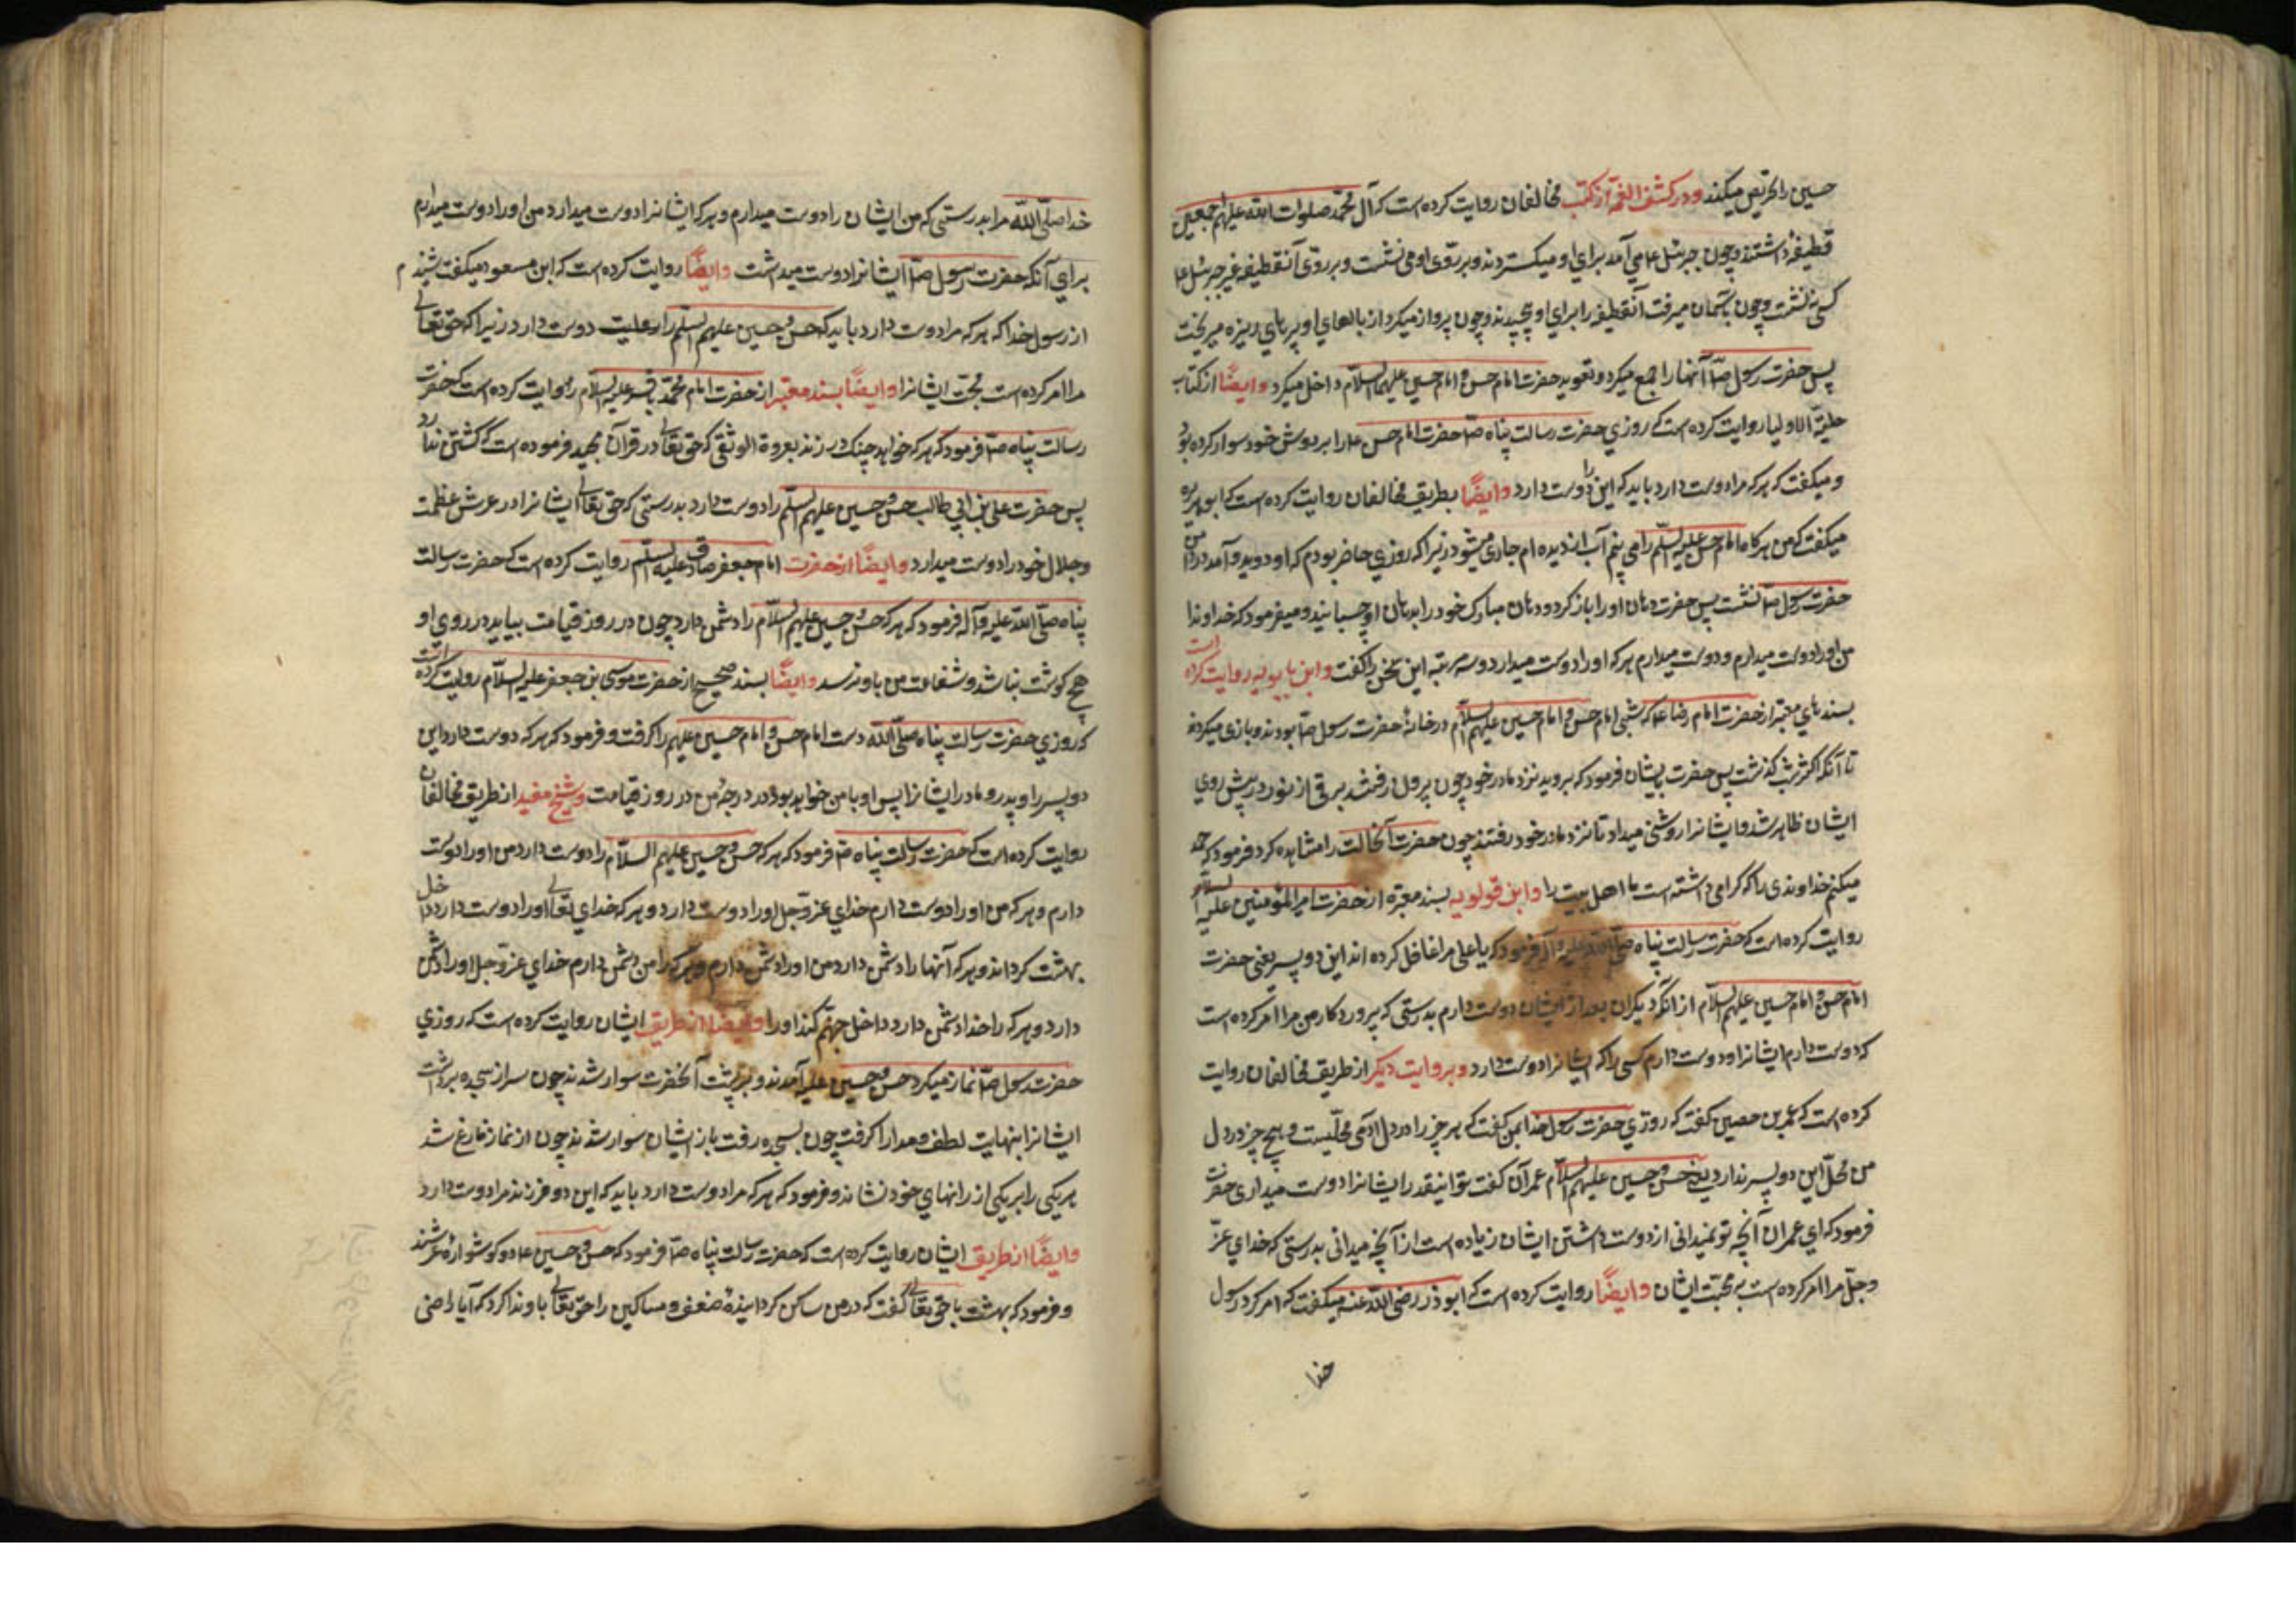 حسین را تحریص میکند و در کشف الغمه از کتب مخالفان روایت کرده است که آل محمد صلوات الله علیهم اجمعین
قطیفهٔ داشتند و چون جبرئیل ع می آمد برای او میکستردند و بر روی او می نشست و بر روی آن قطیفه غیر جبرئیل ع
کسی نمی نشست و چون باسمان میرفت آنقطیفه را برای او می پیچیدند و چون پرواز میکرد از بالهای او پرهای ریزه میریخت
پس حضرت رسول ص آنها را جمع میکرد و تعویذ حضرت امام حسن و امام حسین علیهما السلام داخل میکرد و ایضًا از کتاب
حلیة الاولیا روایت کرده است که روزی حضرت رسالت پناه ص حضرت امام حسن ع را بر دوش خود سوار کرده بود
و میکفت که هر که مرا دوست دارد باید که این را دوست دارد وایضًا بطریق مخالفان روایت کرده است که ابو هریره
میکفت که من هرکاه امام حسن علیه السلم را می بینم آب از دیده ام جاری میشود زیرا که روزی حاضر بودم که او دوید و آمد در دامن
حضرت رسول ص نشست پس حضرت دهان او را باز کرد و دهان مبارک خود را بدهان او چسبانید و میفرمود که خداوندا
من او را دوست میدارم و دوست میدارم هر که او را دوست میدارد و سه مرتبه این سخن را کفت و ابن بابویه روایت کرده است
بسندهای معتبر از حضرت امام رضا ع که شبی امام حسن و امام حسین علیهم السلام در خانهٔ حضرت رسول ص بودند و بازی میکردند
تا آنکه اکثر شب کذشت پس حضرت بایشان فرمود که بروید نزد مادر خود چون بیرون رفتند برقی از نور در پیش روی
ایشان ظاهر شد و ایشانرا روشنی میداد تا نزد مادر خود رفتند چون حضرت آنحالت را مشاهده کرد فرمود که حمد
میکنم خداوندی را که کرامی داشته است ما اهل بیت را و ابن قولویه بسند معتبره از حضرت امیر المؤمنین علیه السلام
روایت کرده است که حضرت رسالت پناه صلی الله علیه و آله فرمود که یا علی مرا غافل کرده اند این دو پسر یعنی حضرت
امام حسن و امام حسین علیهم السلام از آنکه دیکران بعد از ایشان دوست دارم بدرستی که پروردکار من مرا امر کرده است
که دوست دارم ایشانرا و دوست دارم کسی را که ایشانرا دوست دارد و بروایت دیکر از طریق مخالفان روایت
کرده است که عمر بن حصین کفت که روزی حضرت رسول خدا بمن کفت که هر چیز را در دل آدمی محلّیست و هیچ چیز در دل
من محلّ این دو پسر ندارد یعنی حسن و حسین علیهم السلام عمران کفت تو اینقدر ایشانرا دوست میداری حضرت
فرمود که ای عمران آنچه تو نمیدانی از دوست داشتن ایشان زیاده است از آنچه میدانی بدرستی که خدای عزّ
و جلّ مرا امر کرده است به محبّت ایشان وایضًا روایت کرده است که ابو ذر رضی الله عنه میکفت که امر کرد رسول
خدا
خدا صلّی الله مرا بدرستی که من ایشان را دوست میدارم و هر که ایشانرا دوست میدارد من او را دوست میدارم
برای آنکه حضرت رسول ص ایشانرا دوست میداشت وایضًا روایت کرده است که ابن مسعود میکفت شنیدم
از رسول خدا که هر که مرا دوست دارد باید که حسن و حسین علیهم السلم را دوست دارد زیرا که حق تعالی
مرا امر کرده است بمحبّت ایشانرا وایضًا بسند معتبر از حضرت امام محمّد باقر علیه السلام روایت کرده است که حضرت
رسالت پناه ص فرمود که هر که خواهد چنک در زند بعروة الوثقی که حق تعالی در قرآن مجید فرموده است که کسستن ندارد
پس حضرت علی بن ابی طالب حسن و حسین علیهم السلم را دوست دارد بدرستی که حق تعالی ایشانرا در عرش عظمت
و جلال خود را دوست میدارد وایضًا از حضرت امام جعفر صادق علیه السلم روایت کرده است که حضرت رسالت
پناه صلّی الله علیه و آله فرمود که هر که حسن و حسین علیهم السلام را دشمن دارد چون در روز قیامت بیاید در روی او
هیچ کوشت نباشد و شفاعت من باو نرسد وایضًا بسند صحیح از حضرت موسی بن جعفر علیه السلام روایت کرده است
که روزی حضرت رسالت پناه صلّی الله دست امام حسن و امام حسین علیهم را کرفت و فرمود که هر که دوست دارد این
دو پسر را و پدر و مادر ایشانرا پس او با من خواهد بود در درجهٔ من در روز قیامت و شیخ مفید از طریق مخالفان
روایت کرده است که حضرت رسالت پناه ص فرمود که هر که حسن و حسین علیهم السلام را دوست دارد من او را دوست
دارم و هر که من او را دوست دارم خدای عز و جل او را دوست دارد و هر که خدای تعالی او را دوست دارد داخل
بهشت کرداند و هر که آنها را دشمن دارد من او را دشمن دارم و هر که را من دشمن دارم خدای عز و جل او را دشمن
دارد و هر که را خدا دشمن دارد داخل جهنّم کند او را وایضًا از طریق ایشان روایت کرده است که روزی
حضرت رسول ص نماز میکرد حسن و حسین علیه آمدند و بر پشت آنحضرت سوار شدند چون سر از سجده برداشت
ایشانرا بنهایت لطف و مدارا کرفت چون بسجده رفت باز ایشان سوار شدند چون از نماز فارغ شد
هر یکی را بر یکی از رانهای خود نشاند و فرمود که هر که مرا دوست دارد باید که این دو فرزند مرا دوست دارد
وایضًا از طریق ایشان روایت کرده است که حضرت رسالت پناه ص فرمود که حسن و حسین ع دو کوشوارهٔ عرشند
و فرمود که بهشت با حق تعالی کفت که در من ساکن کردانیدهٔ ضعفی و مساکین را حق تعالی باو ندا کرد که آیا راضی